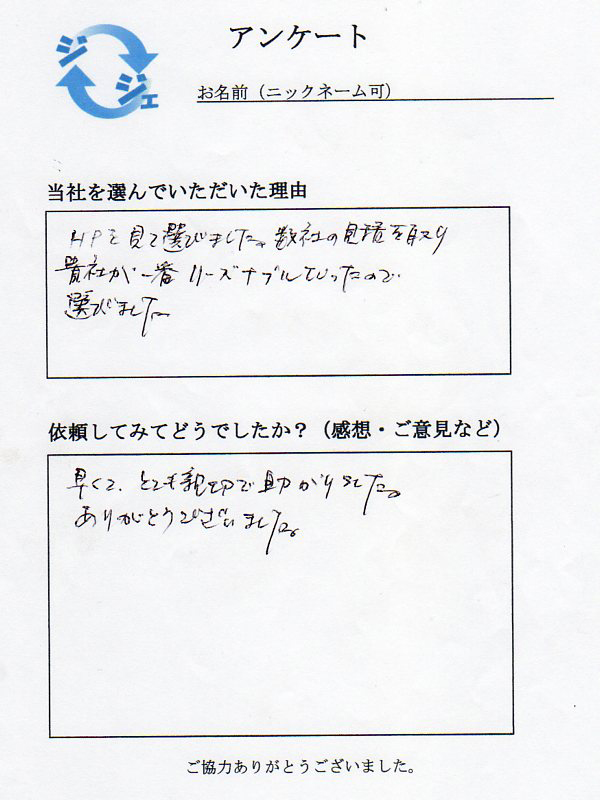 ジジェ
アンケート
お名前（ニックネーム可）
当社を選んでいただいた理由
HPを見て選びました。数社の見積を取り
貴社が一番リーズナブルだったので
選びました。
依頼してみてどうでしたか？（感想・ご意見など）
早くて、とても親切で助かりました。
ありがとうございました。
ご協力ありがとうございました。